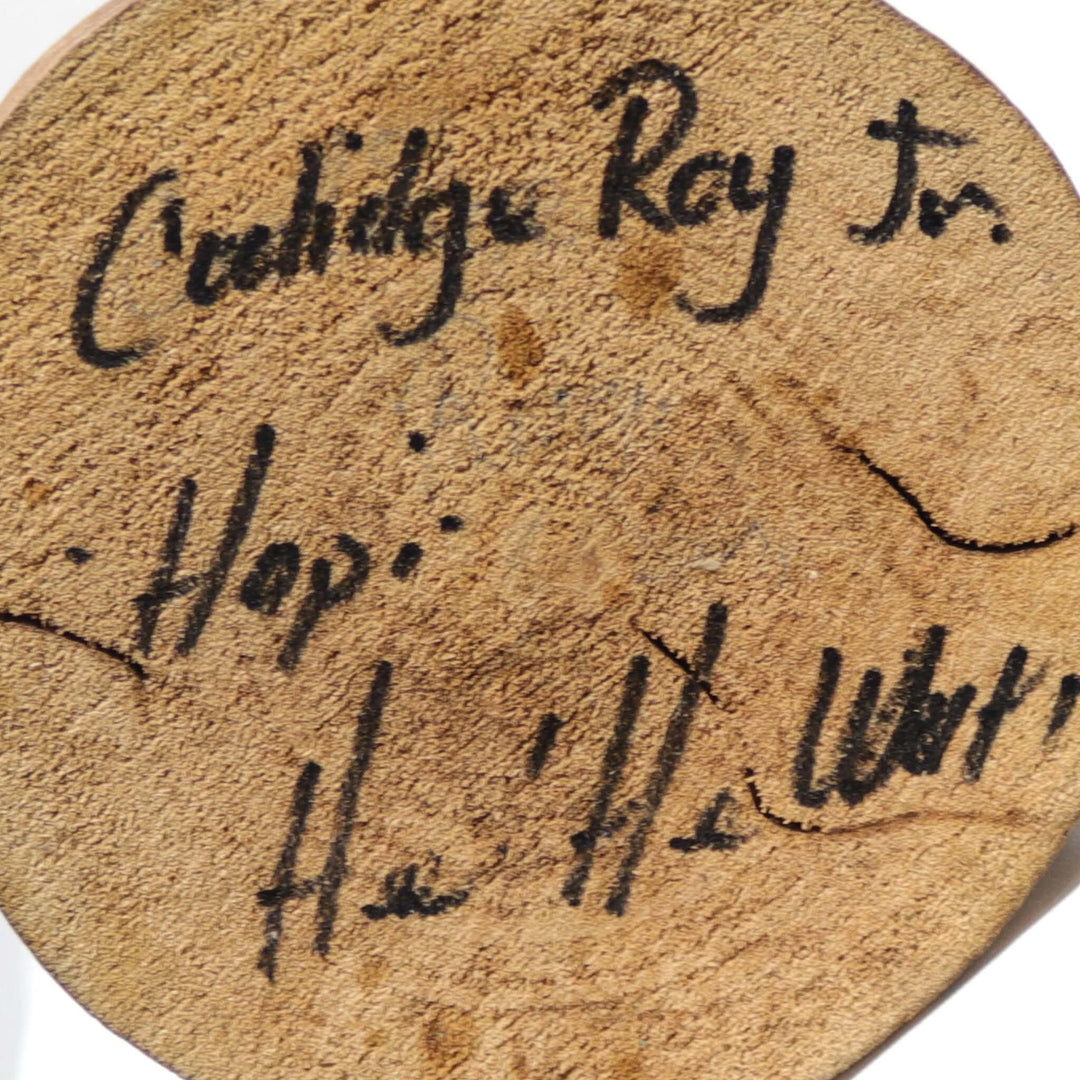 Coolidge Roy Jr.
Hopi
He'He Wuti